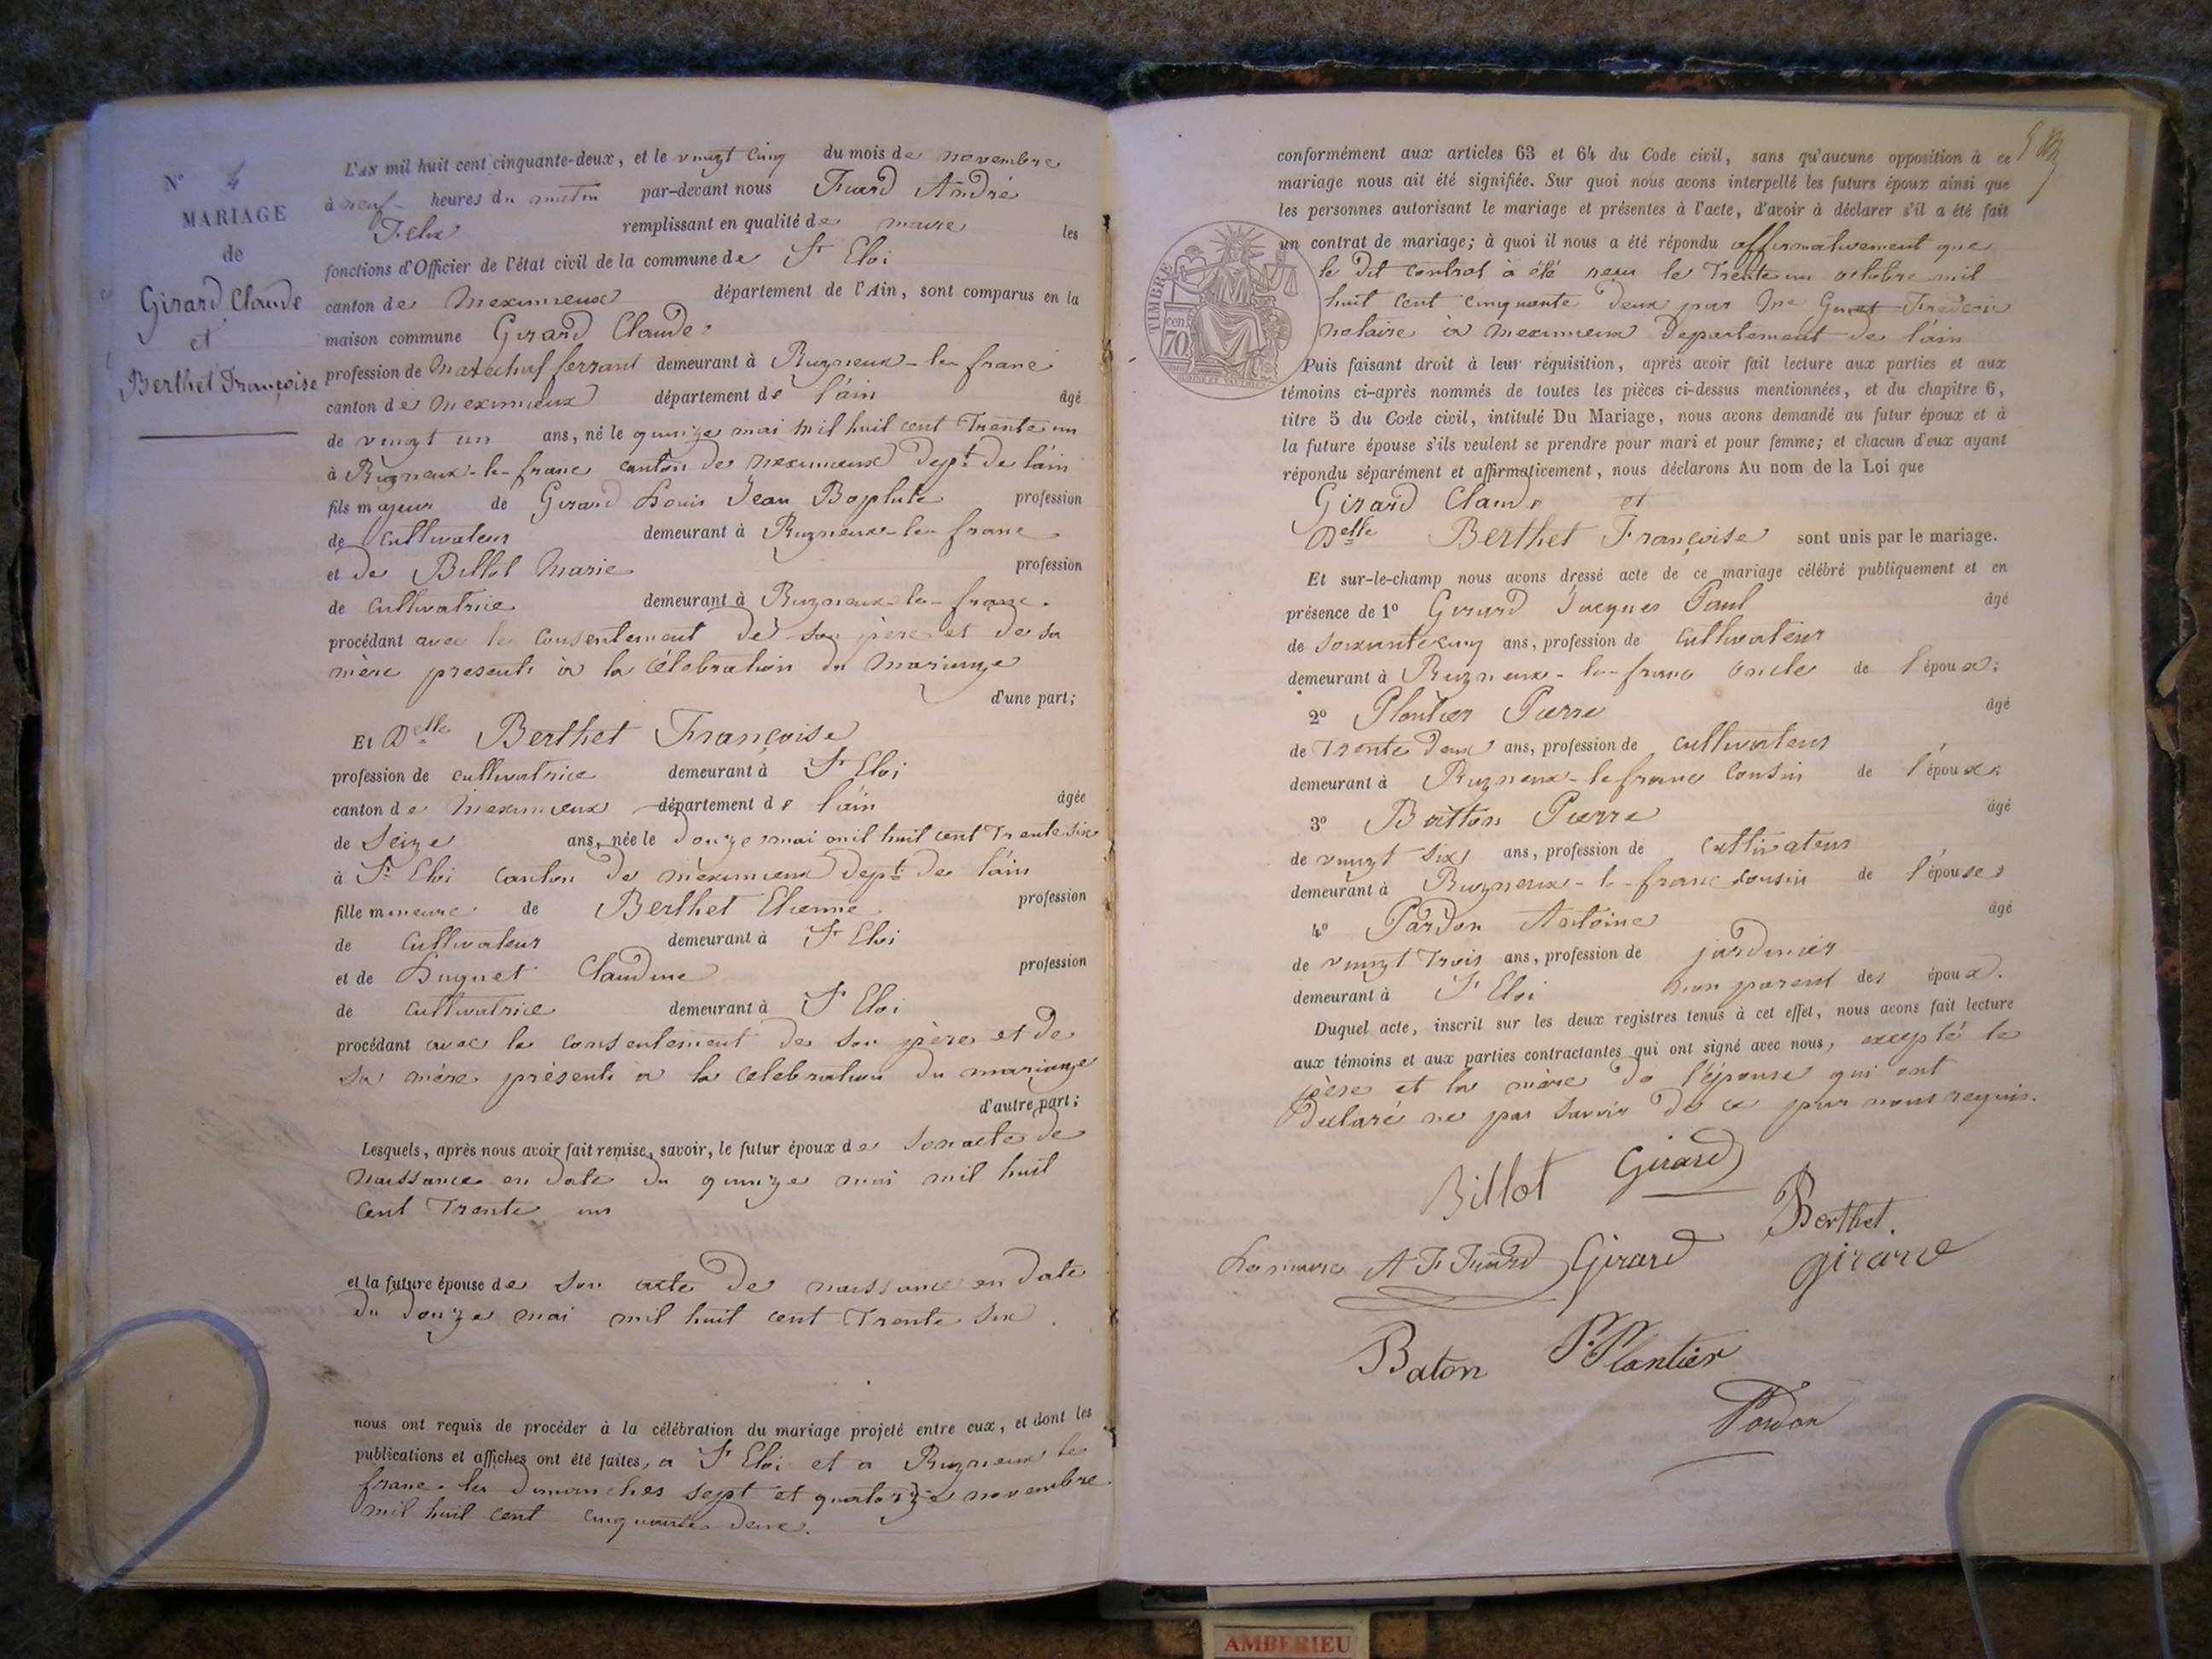 N° 4
MARIAGE
de
Girard Claude
et
Berthet Françoise
L'AN mil huit cent cinquante-deux, et le vingt cinq du mois de novembre
à neuf heures du matin par-devant nous André
Felix remplissant en qualité de maire les
fonctions d'Officier de l'état civil de la commune de St Eloi
canton de Meximieux département de l'Ain, sont comparus en la
maison commune Girard Claude
profession de Maréchal ferrant demeurant à Rigneux-le-franc
canton de Meximieux département de l'ain âgé
de vingt un ans, né le quinze mai mil huit cent Trente un
à Rigneux-le-franc canton de Meximieux dept de l'ain
fils majeur de Girard Louis Jean Baptiste profession
de Cultivateur demeurant à Rigneux-le-franc
et de Billot Marie profession
de Cultivatrice demeurant à Rigneux-le-franc.
procédant avec le consentement de son père et de sa
mère présents à la célébration du Mariage
d'une part;
Et Delle Berthet Françoise
profession de cultivatrice demeurant à St Eloi
canton de Meximieux département de l'ain âgée
de Seize ans, née le douze mai mil huit cent Trente six
à St Eloi canton de méximieux dept de l'ain
fille mineure de Berthet Etienne profession
de Cultivateur demeurant à St Eloi
et de Huguet Claudine profession
de Cultivatrice demeurant à St Eloi
procédant avec le consentement de son père et de
sa mère présents à la célébration du mariage
d'autre part;
Lesquels, après nous avoir fait remise, savoir, le futur époux de son acte de
naissance en date du quinze mai mil huit
cent Trente un
et la future épouse de son acte de naissance en date
du douze mai mil huit cent Trente six.
nous ont requis de procéder à la célébration du mariage projeté entre eux, et dont les
publications et affiches ont été faites, a St Eloi et a Rigneux le
franc les dimanches sept et quatorze novembre
mil huit cent cinquante deux.
conformément aux articles 63 et 64 du Code civil, sans qu'aucune opposition à ce
mariage nous ait été signifiée. Sur quoi nous avons interpellé les futurs époux ainsi que
les personnes autorisant le mariage et présentes à l'acte, d'avoir à déclarer s'il a été fait
un contrat de mariage; à quoi il nous a été répondu affirmativement que
le dit contrat a été recu le Trente un octobre mil
huit cent cinquante deux par Me Frederic
notaire à Meximieux departement de l'ain
TIMBRE
70 cen
Puis faisant droit à leur réquisition, après avoir fait lecture aux parties et aux
témoins ci-après nommés de toutes les pièces ci-dessus mentionnées, et du chapitre 6,
titre 5 du Code civil, intitulé Du Mariage, nous avons demandé au futur époux et à
la future épouse s'ils veulent se prendre pour mari et pour femme; et chacun d'eux ayant
répondu séparément et affirmativement, nous déclarons Au nom de la Loi que
Girard Claude et
Delle Berthet Françoise sont unis par le mariage.
Et sur-le-champ nous avons dressé acte de ce mariage célébré publiquement et en
présence de 1° Girard Jacques Paul âgé
de soixante cinq ans, profession de Cultivateur
demeurant à Rigneux-le-franc oncle de l'époux;
2° Plantier Pierre âgé
de Trente deux ans, profession de cultivateur
demeurant à Rigneux-le franc cousin de l'époux;
3° Batton Pierre âgé
de vingt six ans, profession de Cultivateur
demeurant à Rigneux-le-franc cousin de l'épouse;
4° Pardon Antoine âgé
de vingt Trois ans, profession de jardinier
demeurant à St Eloi non parent des époux.
Duquel acte, inscrit sur les deux registres tenus à cet effet, nous avons fait lecture
aux témoins et aux parties contractantes qui ont signé avec nous, excepté le
père et la mère de l'épouse qui ont
déclaré ne pas savoir de ce par nous requis.
Billot Girard
Berthet.
Le maire Girard girard
Baton P. Plantier
Pardon
AMBERIEU